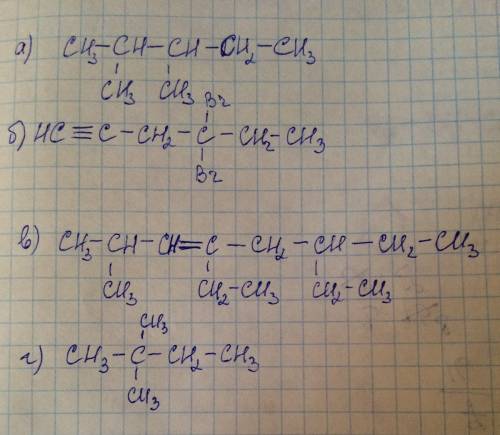 а) CH₃–CH–CH–CH₂–CH₃
CH₃ CH₃
Br
б) HC≡C–CH₂–C–CH₂–CH₃
Br
в) CH₃–CH–CH=C–CH₂–CH–CH₂–CH₃
CH₃ CH₂–CH₃ CH₂–CH₃
CH₃
г) CH₃–C–CH₂–CH₃
CH₃